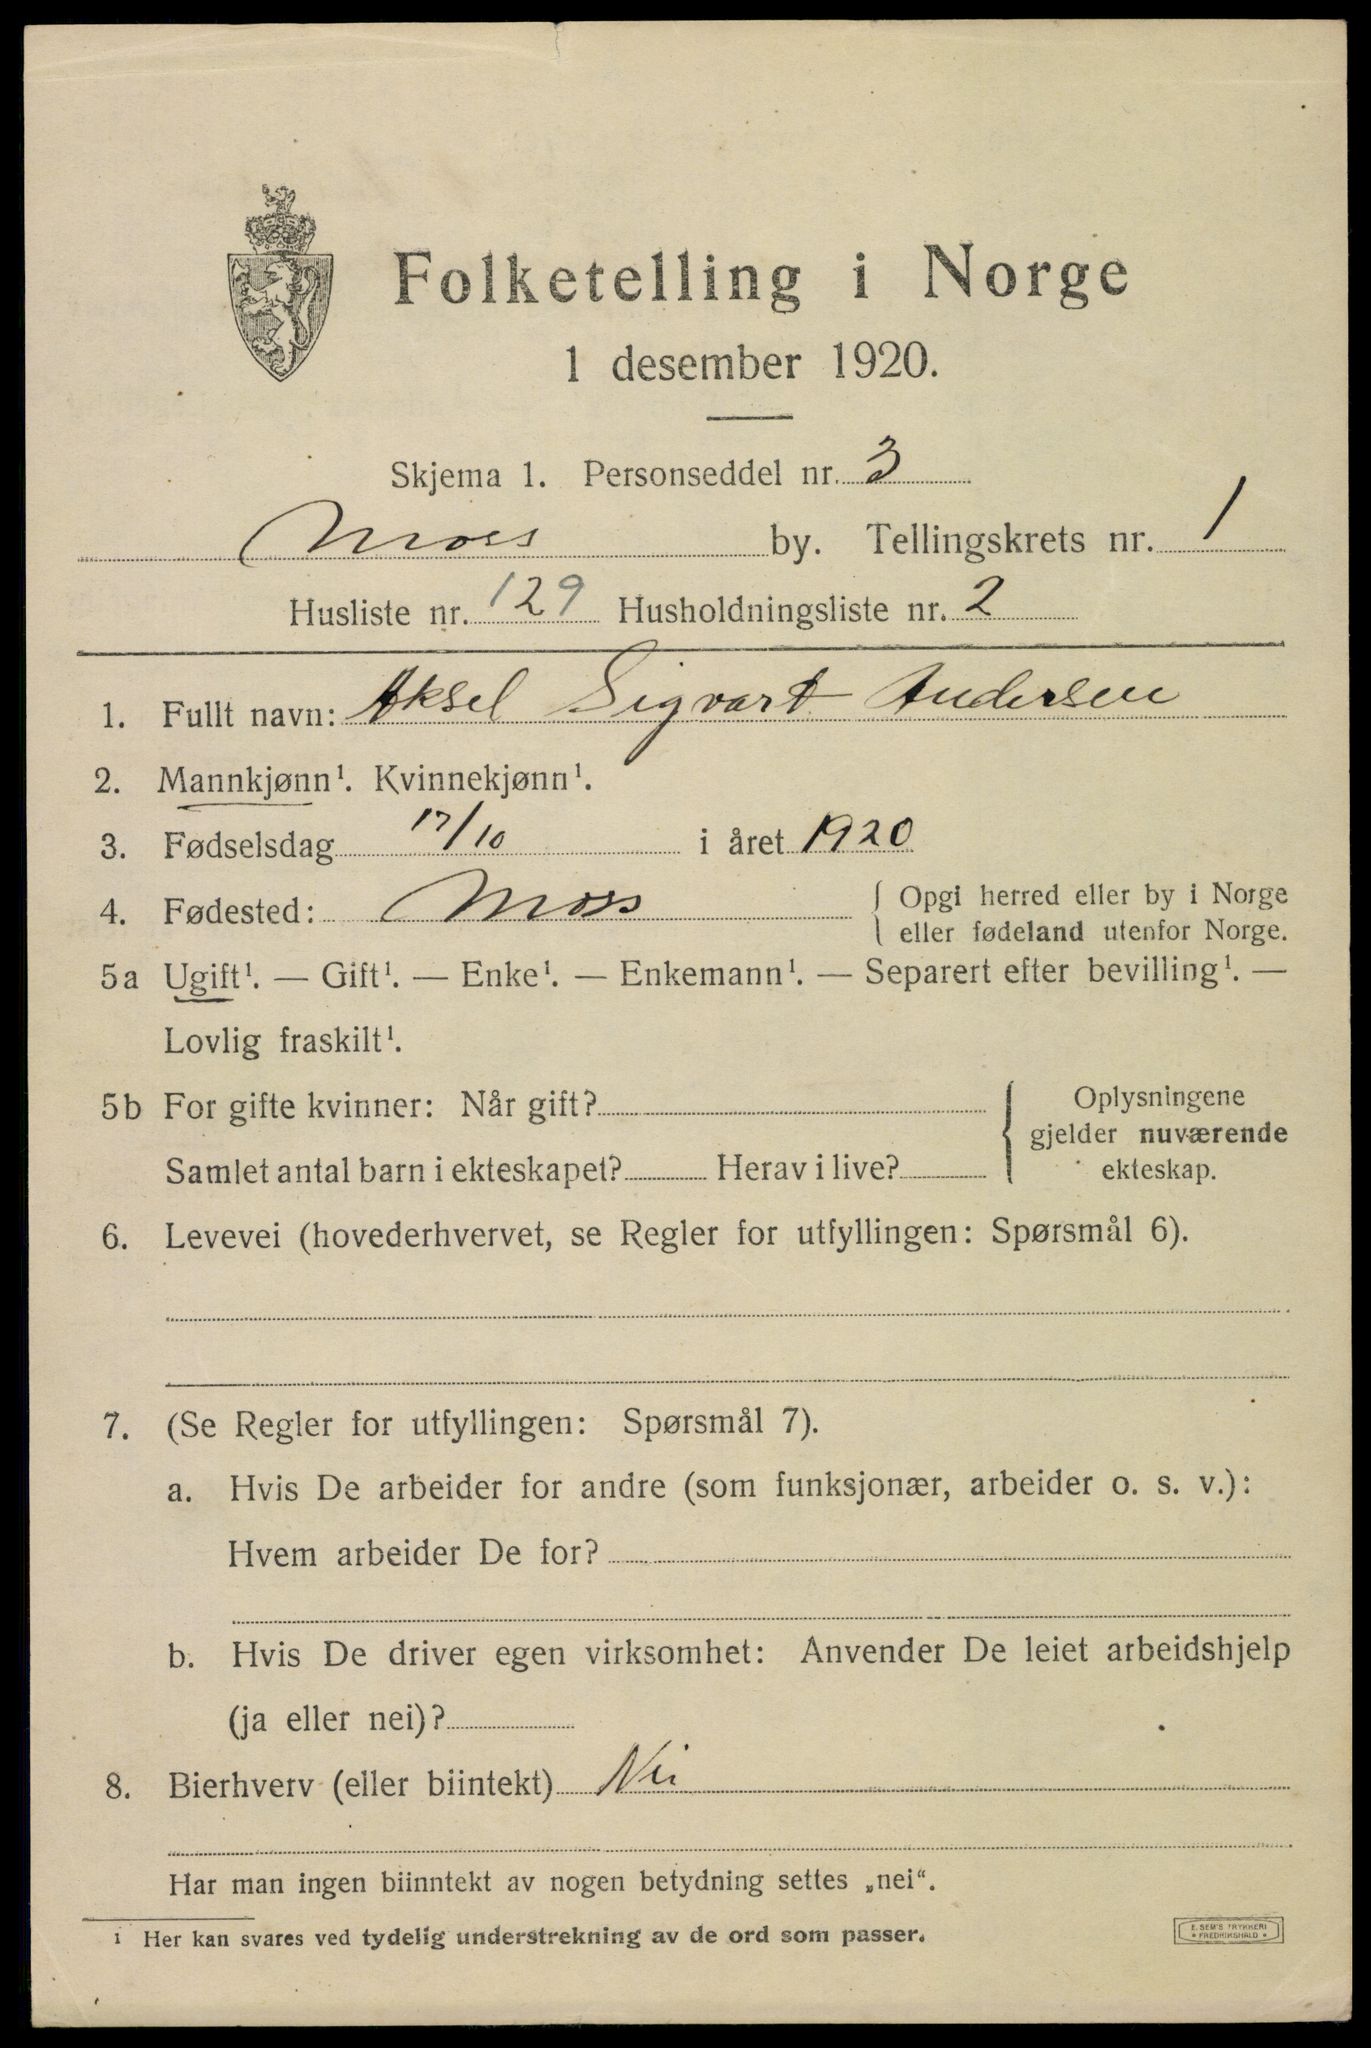 Folketelling i Norge
1 desember 1920.
Skjema 1. Personseddel nr. 3
Moss by. Tellingskrets nr. 1
Husliste nr. 129 Husholdningsliste nr. 2
1. Fullt navn: Aksel Sigvart Andersen
2. Mannkjønn¹. Kvinnekjønn¹.
3. Fødselsdag 17/10 i året 1920
4. Fødested: Moss { Opgi herred eller by i Norge
eller fødeland utenfor Norge.
5a Ugift¹. — Gift¹. — Enke¹. — Enkemann¹. — Separert efter bevilling¹. —
Lovlig fraskilt¹.
5b For gifte kvinner: Når gift? { Oplysningene
gjelder nuværende
Samlet antal barn i ekteskapet? Herav i live? ekteskap.
6. Levevei (hovederhvervet, se Regler for utfyllingen: Spørsmål 6).
7. (Se Regler for utfyllingen: Spørsmål 7).
a. Hvis De arbeider for andre (som funksjonær, arbeider o. s. v.):
Hvem arbeider De for?
b. Hvis De driver egen virksomhet: Anvender De leiet arbeidshjelp
(ja eller nei)?
8. Bierhverv (eller biintekt) Nei
Har man ingen biinntekt av nogen betydning settes „nei“.
1 Her kan svares ved tydelig understrekning av de ord som passer.
E. SEM'S TRYKKERI
* FREDRIKSHALD *